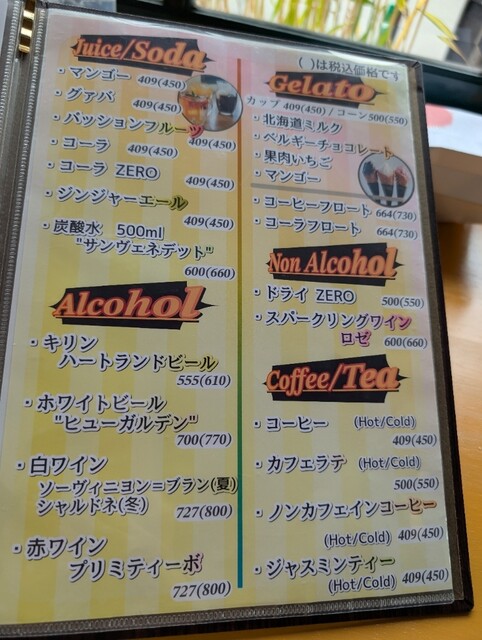 Juice/Soda
・マンゴー 409(450)
・グァバ 409(450)
・パッションフルーツ
409(450)
・コーラ 409(450)
・コーラ ZERO
409(450)
・ジンジャーエール
409(450)
・炭酸水 500ml
"サンヴェネデット"
600(660)
Alcohol
・キリン
ハートランドビール
555(610)
・ホワイトビール
"ヒューガルデン"
700(770)
・白ワイン
ソーヴィニヨン=ブラン(夏)
シャルドネ(冬) 727(800)
・赤ワイン
プリミティーボ
727(800)
( )は税込価格です
Gelato
カップ 409(450) / コーン500(550)
・北海道ミルク
・ベルギーチョコレート
・果肉いちご
・マンゴー
・コーヒーフロート 664(730)
・コーラフロート 664(730)
Non Alcohol
・ドライ ZERO 500(550)
・スパークリングワイン
ロゼ 600(660)
Coffee/Tea
・コーヒー (Hot/Cold)
409(450)
・カフェラテ (Hot/Cold)
500(550)
・ノンカフェインコーヒー
(Hot/Cold) 409(450)
・ジャスミンティー
(Hot/Cold) 409(450)